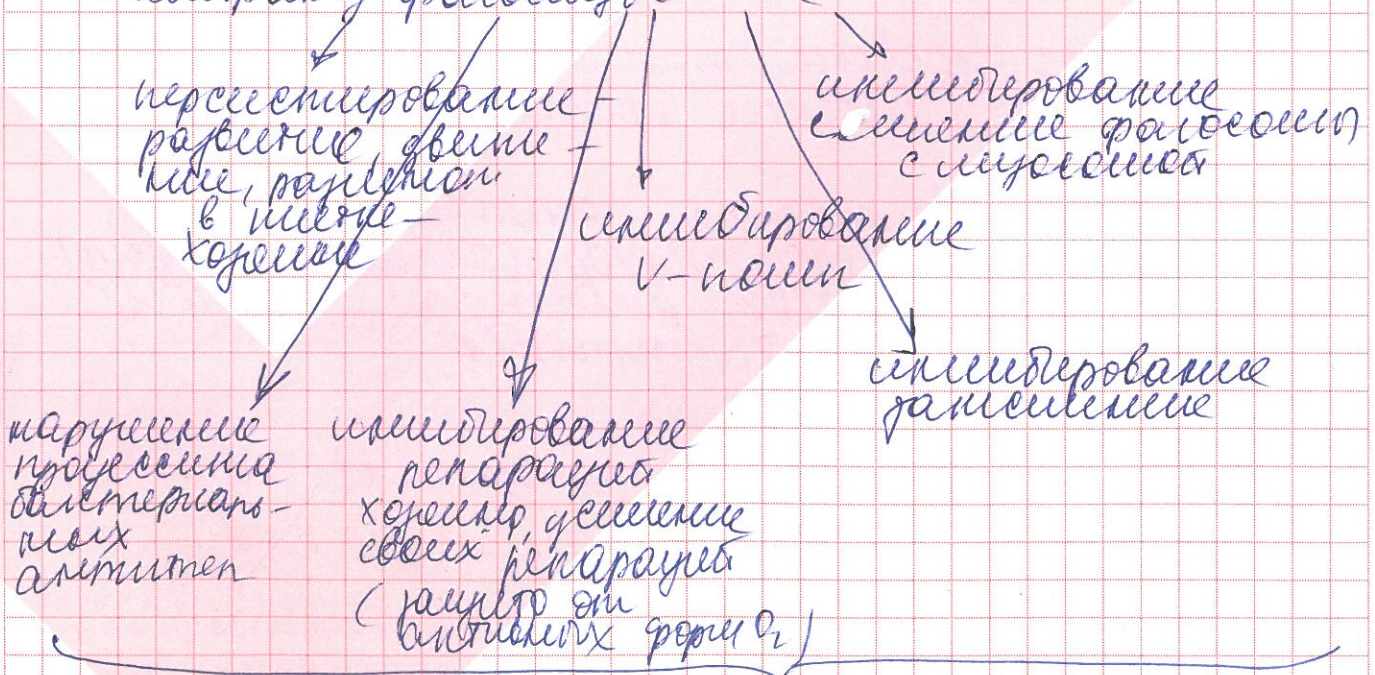 персистирование –
развитие, движе –
ние, размнож
в клетке –
хозяине
ингибирование
слияние фагосомы
с лизосомой
ингибирование
V – помп
ингибирование
закисление
нарушение
процессинга
бактериаль –
ных
антител
ингибирование
репараций
хозяина, усиление
своих репараций
(защита от
активных форм O₂)